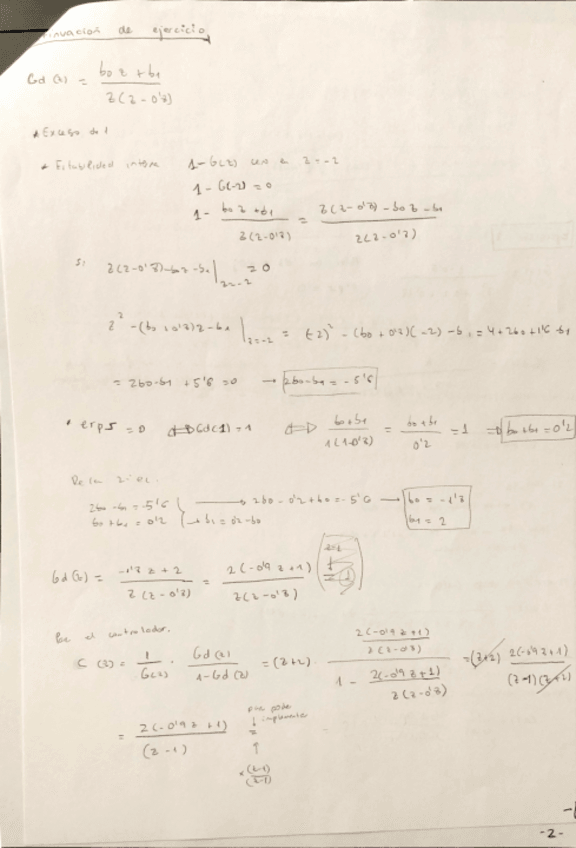 de ejercicio
Gd (z) = (b0 z + b1) / (z (z - 0'8))
* Exceso de 1
* Estabilidad interna 1 - G(z) cero en z = -2
1 - G(-2) = 0
1 - (b0 z + b1) / (z(z-0'8)) = (z(z-0'8) - b0 z - b1) / (z(z-0'8))
Si z(z-0'8) - b0z - b1 |z=-2 = 0
z² - (b0 + 0'8)z - b1 |z=-2 = (-2)² - (b0 + 0'8)(-2) - b1 = 4 + 2b0 + 1'6 - b1
= 2b0 - b1 + 5'6 = 0 → 2b0 - b1 = -5'6
* erps = 0 ⇔ Gd(1) = 1 ⇔ (b0 + b1) / (1(1-0'8)) = (b0 + b1) / 0'2 = 1 ⇒ b0 + b1 = 0'2
De la
2b0 - b1 = -5'6 → 2b0 - 0'2 + b0 = -5'6 → b0 = -1'8
b0 + b1 = 0'2 → b1 = 0'2 - b0 b1 = 2
Gd(z) = (-1'8 z + 2) / (z (z - 0'8)) = 2(-0'9 z + 1) / (z(z - 0'8))
el controlador.
C (z) = 1 / G(z) · Gd (z) / (1 - Gd (z)) = (z+2) · (2(-0'9 z + 1) / (z(z-0'8))) / (1 - 2(-0'9 z + 1) / (z(z-0'8))) = (z+2) 2(-0'9 z + 1) / ((z-1)(z+2))
= 2(-0'9 z + 1) / (z - 1) =
para poder
↓ implementar
↑
× (z-1) / (z-1)
-2-